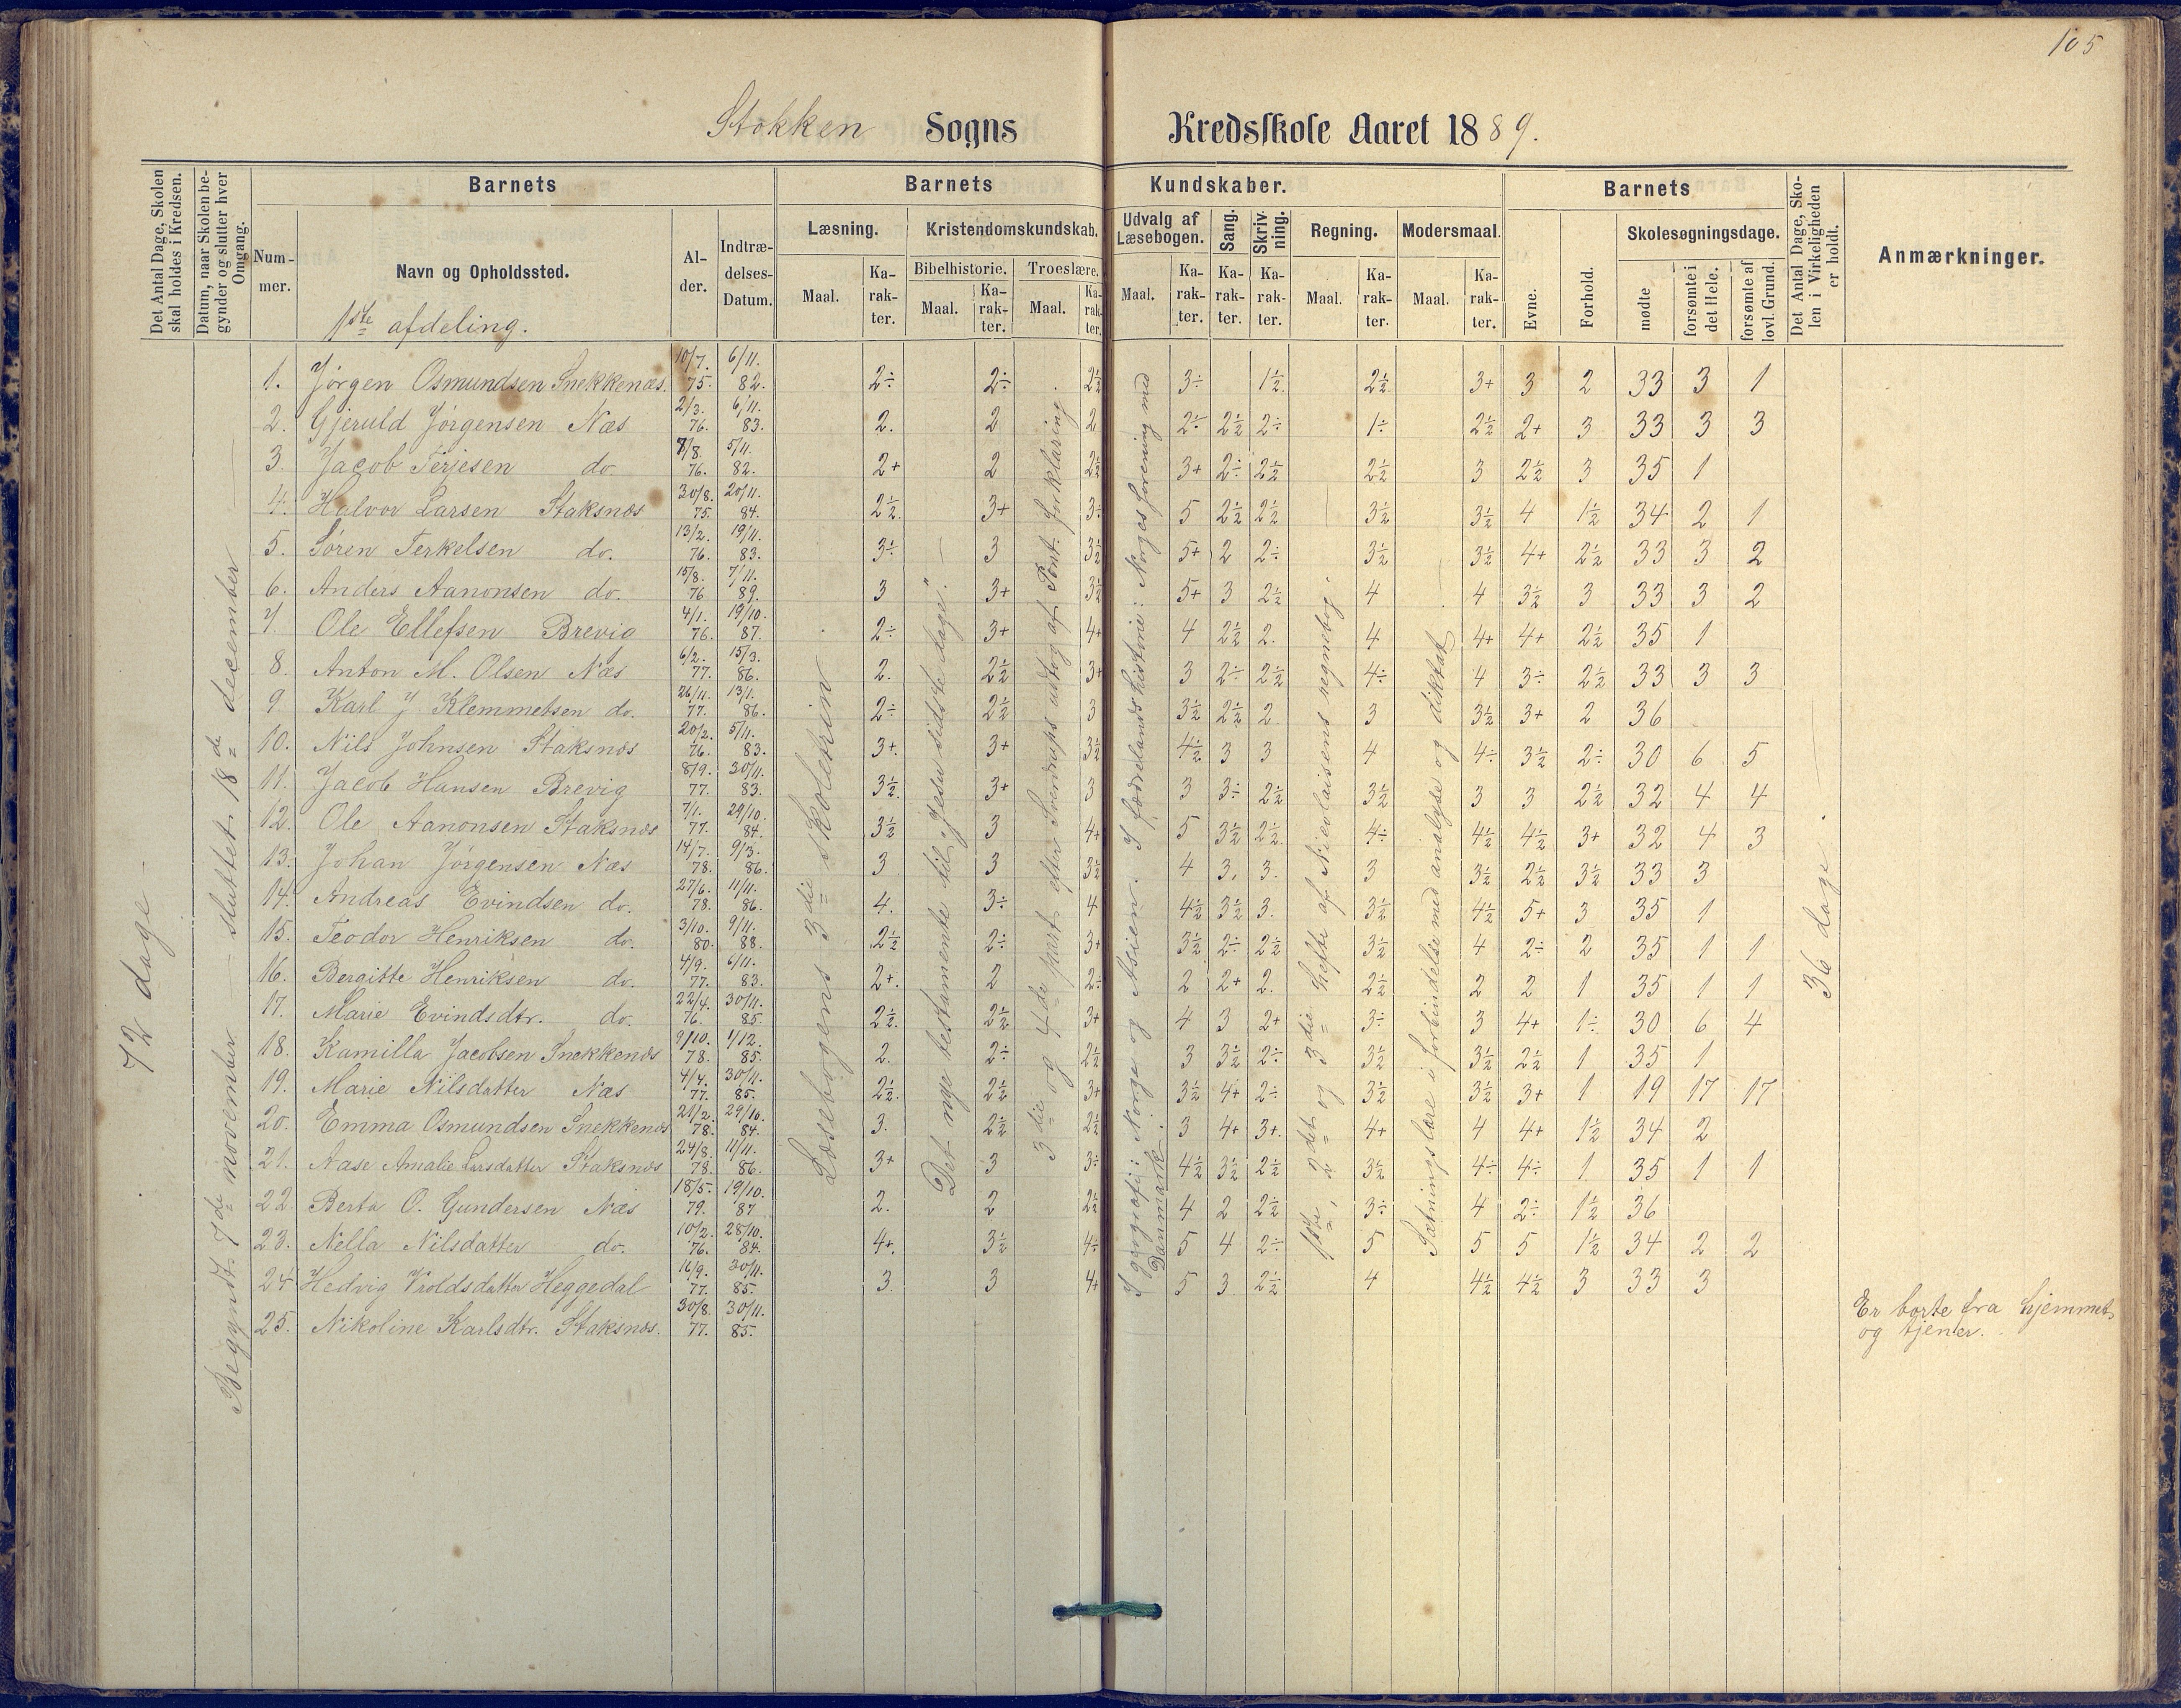 105
Stokken Sogns Kredsskole Aaret 1889.
Det Antal Dage, Skolen skal holdes i Kredsen.
Datum, naar Skolen begynder og slutter hver Omgang.
Barnets
Barnets Kundskaber.
Barnets
Det Antal Dage, Skolen i Virkeligheden er holdt.
Anmærkninger.
Nummer.
Navn og Opholdssted.
Alder.
Indtrædelses-Datum.
Læsning.
Kristendomskundskab.
Udvalg af Læsebogen.
Sang.
Skrivning.
Regning.
Modersmaal.
Evne.
Forhold.
Skolesøgningsdage.
Maal. Karakter.
Bibelhistorie. Troeslære.
Maal. Karakter. Maal. Karakter.
Maal. Karakter. Karakter. Karakter. Maal. Karakter. Maal. Karakter.
mødte
forsømte i det Hele.
forsømte af lovl. Grund.
1ste afdeling.
72 dage.
Begyndt 7de november — sluttet 18de december
Læsebogens 3die Skoletrin
Det nye testamente til „Jesu sidste dage".
3die og 4de part efter Sverdrups udtog af Pont. forklaring
I geografi: Norge og Asien. I fædrelandshistorie: Norges forening med Danmark.
1ste, 2det og 3die hefte af Nicolaisens regnebog.
Sætningslære i forbindelse med analyse og diktat
36 dage.
1. Jørgen Osmundsen Snekkenæs. 10/7. 75. 6/11. 82. 2÷ 2÷ 2½ 3÷ 1½ 2½ 3+ 3 2 33 3 1
2. Gjeruld Jørgensen Næs 2/3. 76. 6/11. 83. 2. 2 2 2÷ 2½ 2÷ 1÷ 2½ 2+ 3 33 3 3
3. Jacob Terjesen do. 7/8. 76. 5/11. 82. 2+ 2 2½ 3+ 2÷ 2½ 2½ 3 2½ 3 35 1
4. Halvor Larsen Staksnæs 30/8. 75. 20/11. 84. 2½. 3+ 3÷ 5 2½ 2½ 3½ 3½ 4 1½ 34 2 1
5. Søren Terkelsen do. 13/2. 76. 19/11. 83. 3÷ 3 3½ 5+ 2 2÷ 3½ 3½ 4+ 2½ 33 3 2
6. Anders Aanonsen do. 15/8. 76 7/11. 89. 3 3+ 3½ 5+ 3 2½ 4 4 3½ 3 33 3 2
7. Ole Ellefsen Brevig 4/1. 76. 19/10. 87. 2÷ 3+ 4+ 4 2½ 2. 4 4+ 4+ 2½ 35 1
8. Anton M. Olsen Næs 6/2. 77. 15/3. 86. 2. 2½ 3+ 3 2÷ 2½ 4÷ 4 3÷ 2½ 33 3 3
9 Karl J Klemmetsen do. 26/11. 77. 13/1. 86. 2÷ 2½ 3 3½ 2½ 2 3 3½ 3+ 2 36
10. Nils Johnsen Staksnæs 20/2. 76. 5/11. 83. 3+. 3+ 3½ 4½ 3 3 4 4÷ 3½ 2÷ 30 6 5
11. Jacob Hansen Brevig 8/9. 77. 30/11. 83. 3½. 3+ 3 3 3÷ 2½ 3½ 3 3 2½ 32 4 4
12. Ole Aanonsen Staksnæs 7/1. 77. 29/10. 84. 3½ 3 4+ 5 3½ 2½ 4÷ 4½ 4½ 3+ 32 4 3
13. Johan Jørgensen Næs 14/7. 78. 9/3. 86. 3 3 3½ 4 3. 3. 3 3½ 2½ 3½ 33 3
14. Andreas Evindsen do. 27/6. 78. 11/11. 86. 4. 3÷ 4 4½ 3½ 3. 3½ 4½ 5+ 3 35 1
15. Teodor Henriksen do. 3/10. 80. 9/11. 88. 2½ 2÷ 3+ 3½ 2÷ 2½ 3½ 4 2÷ 2 35 1 1
16. Bergitte Henriksen do. 4/9. 77. 6/11. 83. 2+. 2 2÷ 2 2+ 2. 2½ 2 2 1 35 1 1
17. Marie Evindsdtr. do. 22/4. 76. 30/11. 85. 2½. 2½ 3+ 4 3 2+ 3÷ 3 4+ 1÷ 30 6 4
18. Kamilla Jacobsen Snekkenæs 9/10. 78. 1/12. 85. 2. 2÷ 2½ 3 3½ 2÷ 3½ 3½ 2½ 1 35 1
19. Marie Nilsdatter Næs 4/4. 77. 30/11. 85. 2½. 2½ 3+ 3½ 4+ 2÷ 3½ 3½ 3+ 1 19 17 17
20. Emma Osmundsen Snekkenæs 21/2. 78. 29/10. 84. 3. 2½ 2½ 3 4+ 3+. 4+ 4 4+ 1½ 34 2
21. Aase Amalie Larsdatter Staksnæs 24/8. 78. 11/11. 86. 3+ 3 3÷ 4½ 3½ 2½ 3½ 4÷ 4÷ 1. 35 1 1
22. Berta O. Gundersen Næs 18/5. 79. 19/10. 87 2. 2 2½ 4 2 2½ 3÷ 4 2÷ 1½ 36
23. Nella Nilsdatter do. 10/2. 76. 28/10. 84. 4+. 3½ 4÷ 5 4 2÷ 5 5 5 1½ 34 2 2
24 Hedvig Vroldsdatter Heggedal 16/9. 77. 30/11. 85. 3. 3 4+ 5 3 2½ 4 4½ 4½ 3 33 3
25. Nikoline Karlsdtr. Staksnæs. 30/8. 77. 30/11. 85. Er borte fra hjemmet,
og tjener.